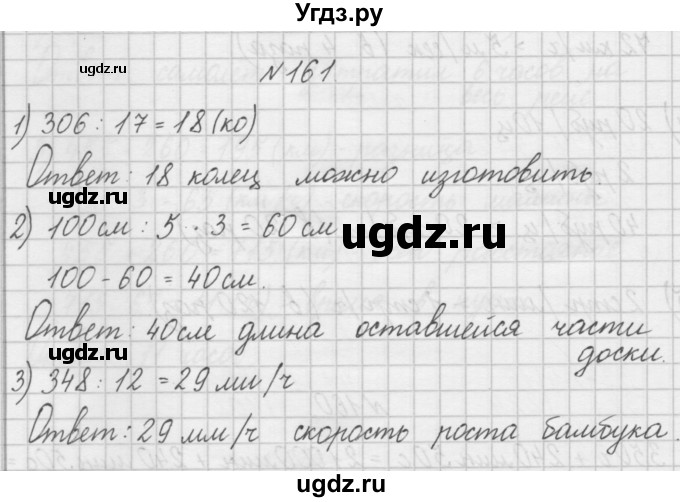 Угдз.ру
ugdz.ru
N161
1) 306 : 17 = 18 (ко)
Ответ: 18 колец можно изготовить.
ugdz.ru
2) 100см : 5 · 3 = 60см
ugdz.ru
100 - 60 = 40см.
Ответ: 40см длина оставшейся части
доски.
ugdz.ru
3) 348 : 12 = 29 мм/ч
Ответ: 29 мм/ч скорость роста бамбука.
ugdz.ru
Угдз.ру